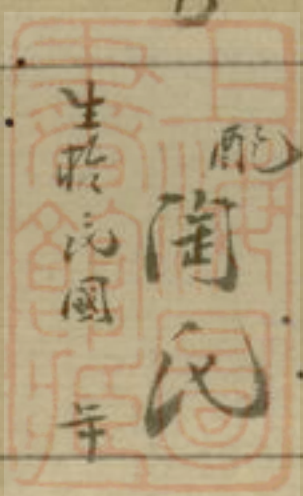 配
陶氏
生於民國 年